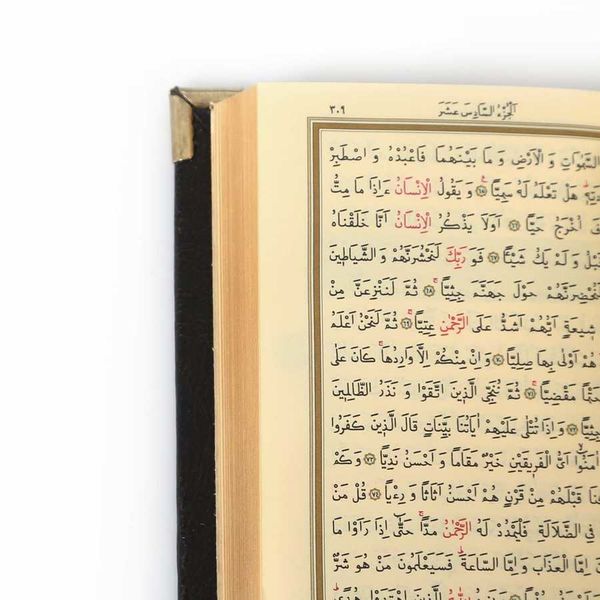 الجزء السادس عشر
٣٠٩
السَّمٰوَاتِ وَ الْاَرْضِ وَ مَا بَيْنَهُمَا فَاعْبُدْهُ وَ اصْطَبِرْ
هَلْ تَعْلَمُ لَهُ سَمِيًّا ۝٦٥ وَ يَقُولُ الْاِنْسَانُ ءَاِذَا مَا مِتُّ
اُخْرَجُ حَيًّا ۝٦٦ اَوَلَا يَذْكُرُ الْاِنْسَانُ اَنَّا خَلَقْنَاهُ
وَ لَمْ يَكُ شَيْئًا ۝٦٧ فَوَ رَبِّكَ لَنَحْشُرَنَّهُمْ وَ الشَّيَاطِينَ
لَنُحْضِرَنَّهُمْ حَوْلَ جَهَنَّمَ جِثِيًّا ۝٦٨ ثُمَّ لَنَنْزِعَنَّ مِنْ
شِيعَةٍ اَيُّهُمْ اَشَدُّ عَلَى الرَّحْمٰنِ عِتِيًّا ۝٦٩ ثُمَّ لَنَحْنُ اَعْلَمُ
هُمْ اَوْلٰى بِهَا صِلِيًّا ۝٧٠ وَ اِنْ مِنْكُمْ اِلَّا وَارِدُهَا كَانَ عَلٰى
حَتْمًا مَقْضِيًّا ۝٧١ ثُمَّ نُنَجِّى الَّذِينَ اتَّقَوْا وَ نَذَرُ الظَّالِمِينَ
جِثِيًّا ۝٧٢ وَ اِذَا تُتْلٰى عَلَيْهِمْ اٰيَاتُنَا بَيِّنَاتٍ قَالَ الَّذِينَ كَفَرُوا
اٰمَنُوا اَىُّ الْفَرِيقَيْنِ خَيْرٌ مَقَامًا وَ اَحْسَنُ نَدِيًّا ۝٧٣ وَ كَمْ
قَبْلَهُمْ مِنْ قَرْنٍ هُمْ اَحْسَنُ اَثَاثًا وَ رِءْيًا ۝٧٤ قُلْ مَنْ
فِى الضَّلَالَةِ فَلْيَمْدُدْ لَهُ الرَّحْمٰنُ مَدًّا حَتّٰى اِذَا رَاَوْا مَا
اِمَّا الْعَذَابَ وَ اِمَّا السَّاعَةَ فَسَيَعْلَمُونَ مَنْ هُوَ شَرٌّ